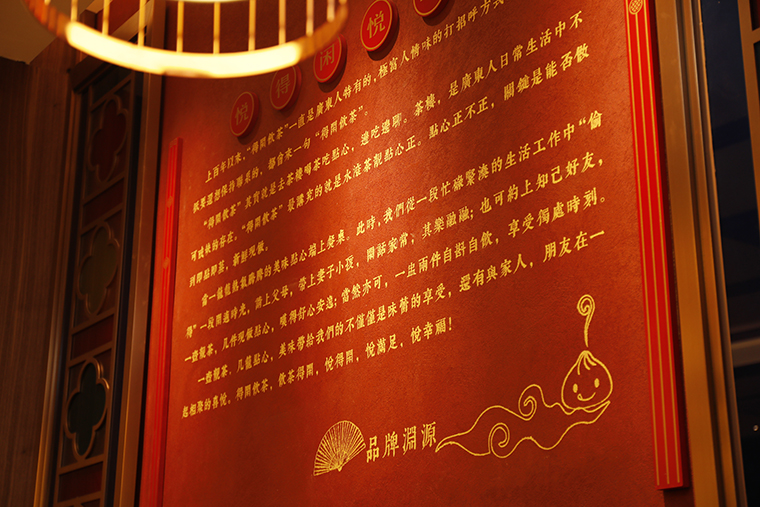 悅得闲悅
上百年以來,“得閑飲茶”一直是廣東人特有的,極富人情味的打招呼方式
只要還想保持聯系的,都會來一句“得閑飲茶”。
“得閑飲茶”其實就是去茶樓喝茶吃點心,邊吃邊聊。茶樓,是廣東人日常生活中不
可或缺的存在,“得閑飲茶”最講究的就是水滾茶靚點心正。點心正不正,關鍵是能否做
到即點即蒸,新鮮現做。
當一籠籠熱氣騰騰的美味點心端上餐桌。此時,我們從一段忙碌緊湊的生活工作中“偷
得”一段閑適時光,請上父母,帶上妻子小孩,閑話家常,其樂融融;也可約上知己好友,
一壺靚茶,几件現做點心,嘆得舒心安逸;當然亦可,一盅兩件自斟自飲,享受獨處時刻。
一壺靚茶,几籠點心,美味帶給我們的不僅僅是味蕾的享受,還有與家人,朋友在一
起相聚的喜悅,得閑飲茶,飲茶得閑,悅得閑,悅滿足,悅幸福!
品牌淵源